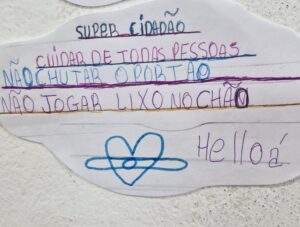 SUPER CIDADÃO
CUIDAR DE TODAS PESSOAS
NÃO CHUTAR O PORTÃO
NÃO JOGAR LIXO NO CHÃO
Helloá